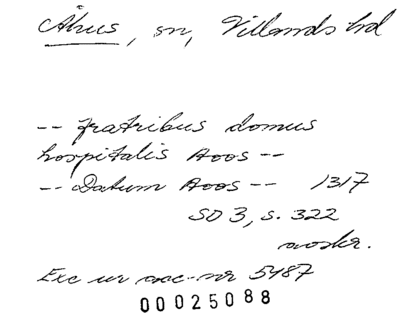 Åhus, sn, Villands hd
-- fratribus domus
hospitalis Aoos --
-- Datum Aoos -- 1317
SD 3, s. 322
avskr.
Exc ur acc-nr 5487
00025088